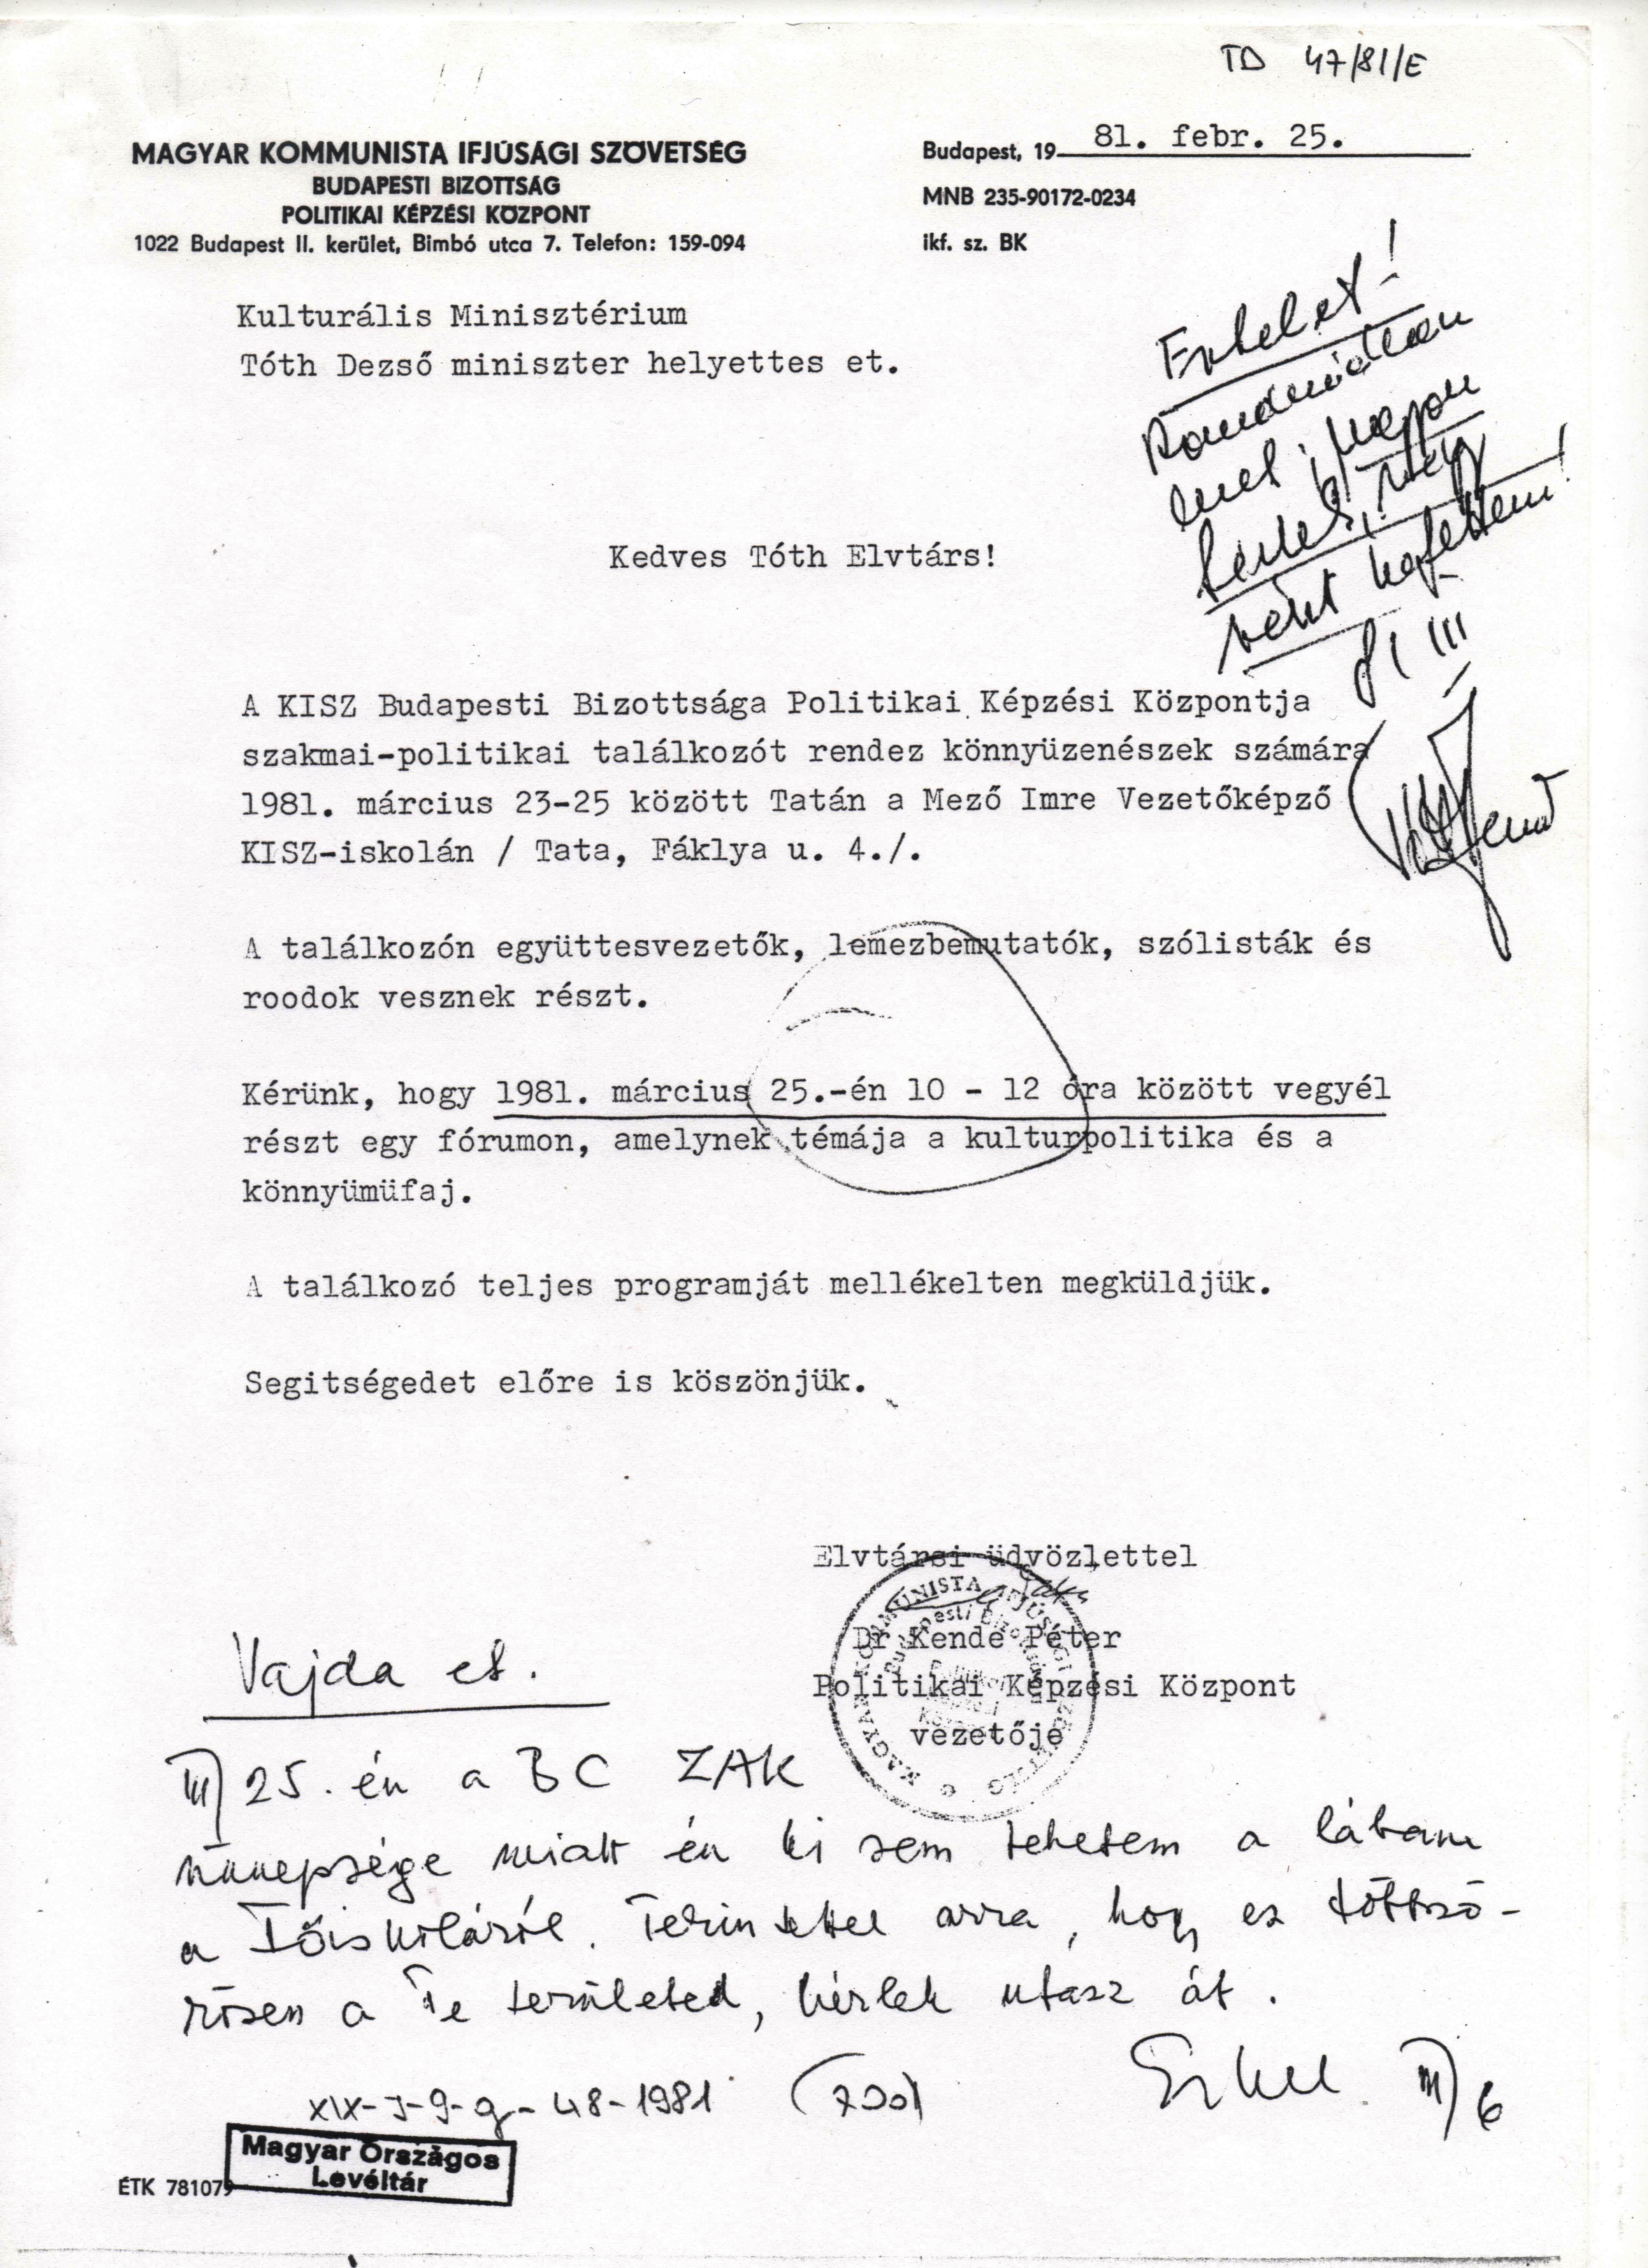 TD 47/81/E
MAGYAR KOMMUNISTA IFJÚSÁGI SZÖVETSÉG
BUDAPESTI BIZOTTSÁG
POLITIKAI KÉPZÉSI KÖZPONT
1022 Budapest II. kerület, Bimbó utca 7. Telefon: 159-094
Budapest, 19 81. febr. 25.
MNB 235-90172-0234
ikf. sz. BK
Kulturális Minisztérium
Tóth Dezső miniszter helyettes et.
Erkel et!
81 III
Kedves Tóth Elvtárs!
A KISZ Budapesti Bizottsága Politikai Képzési Központja
szakmai-politikai találkozót rendez könnyüzenészek számára
1981. március 23-25 között Tatán a Mező Imre Vezetőképző
KISZ-iskolán / Tata, Fáklya u. 4./.
A találkozón együttesvezetők, lemezbemutatók, szólisták és
roodok vesznek részt.
Kérünk, hogy 1981. március 25.-én 10 - 12 óra között vegyél
részt egy fórumon, amelynek témája a kulturpolitika és a
könnyümüfaj.
A találkozó teljes programját mellékelten megküldjük.
Segitségedet előre is köszönjük.
Elvtársi üdvözlettel
Dr Kende Péter
Politikai Képzési Központ
vezetője
Vajda et.
III) 25.-én a BC ZAK
ünnepsége miatt én ki sem tehetem a lábam
a Főiskoláról. Tekintettel arra, hogy ez többszö-
rösen a Te területed, kérlek utazz át.
Erkel III) 6
XIX-J-9-g-48-1981
Magyar Országos
Levéltár
ÉTK 781079